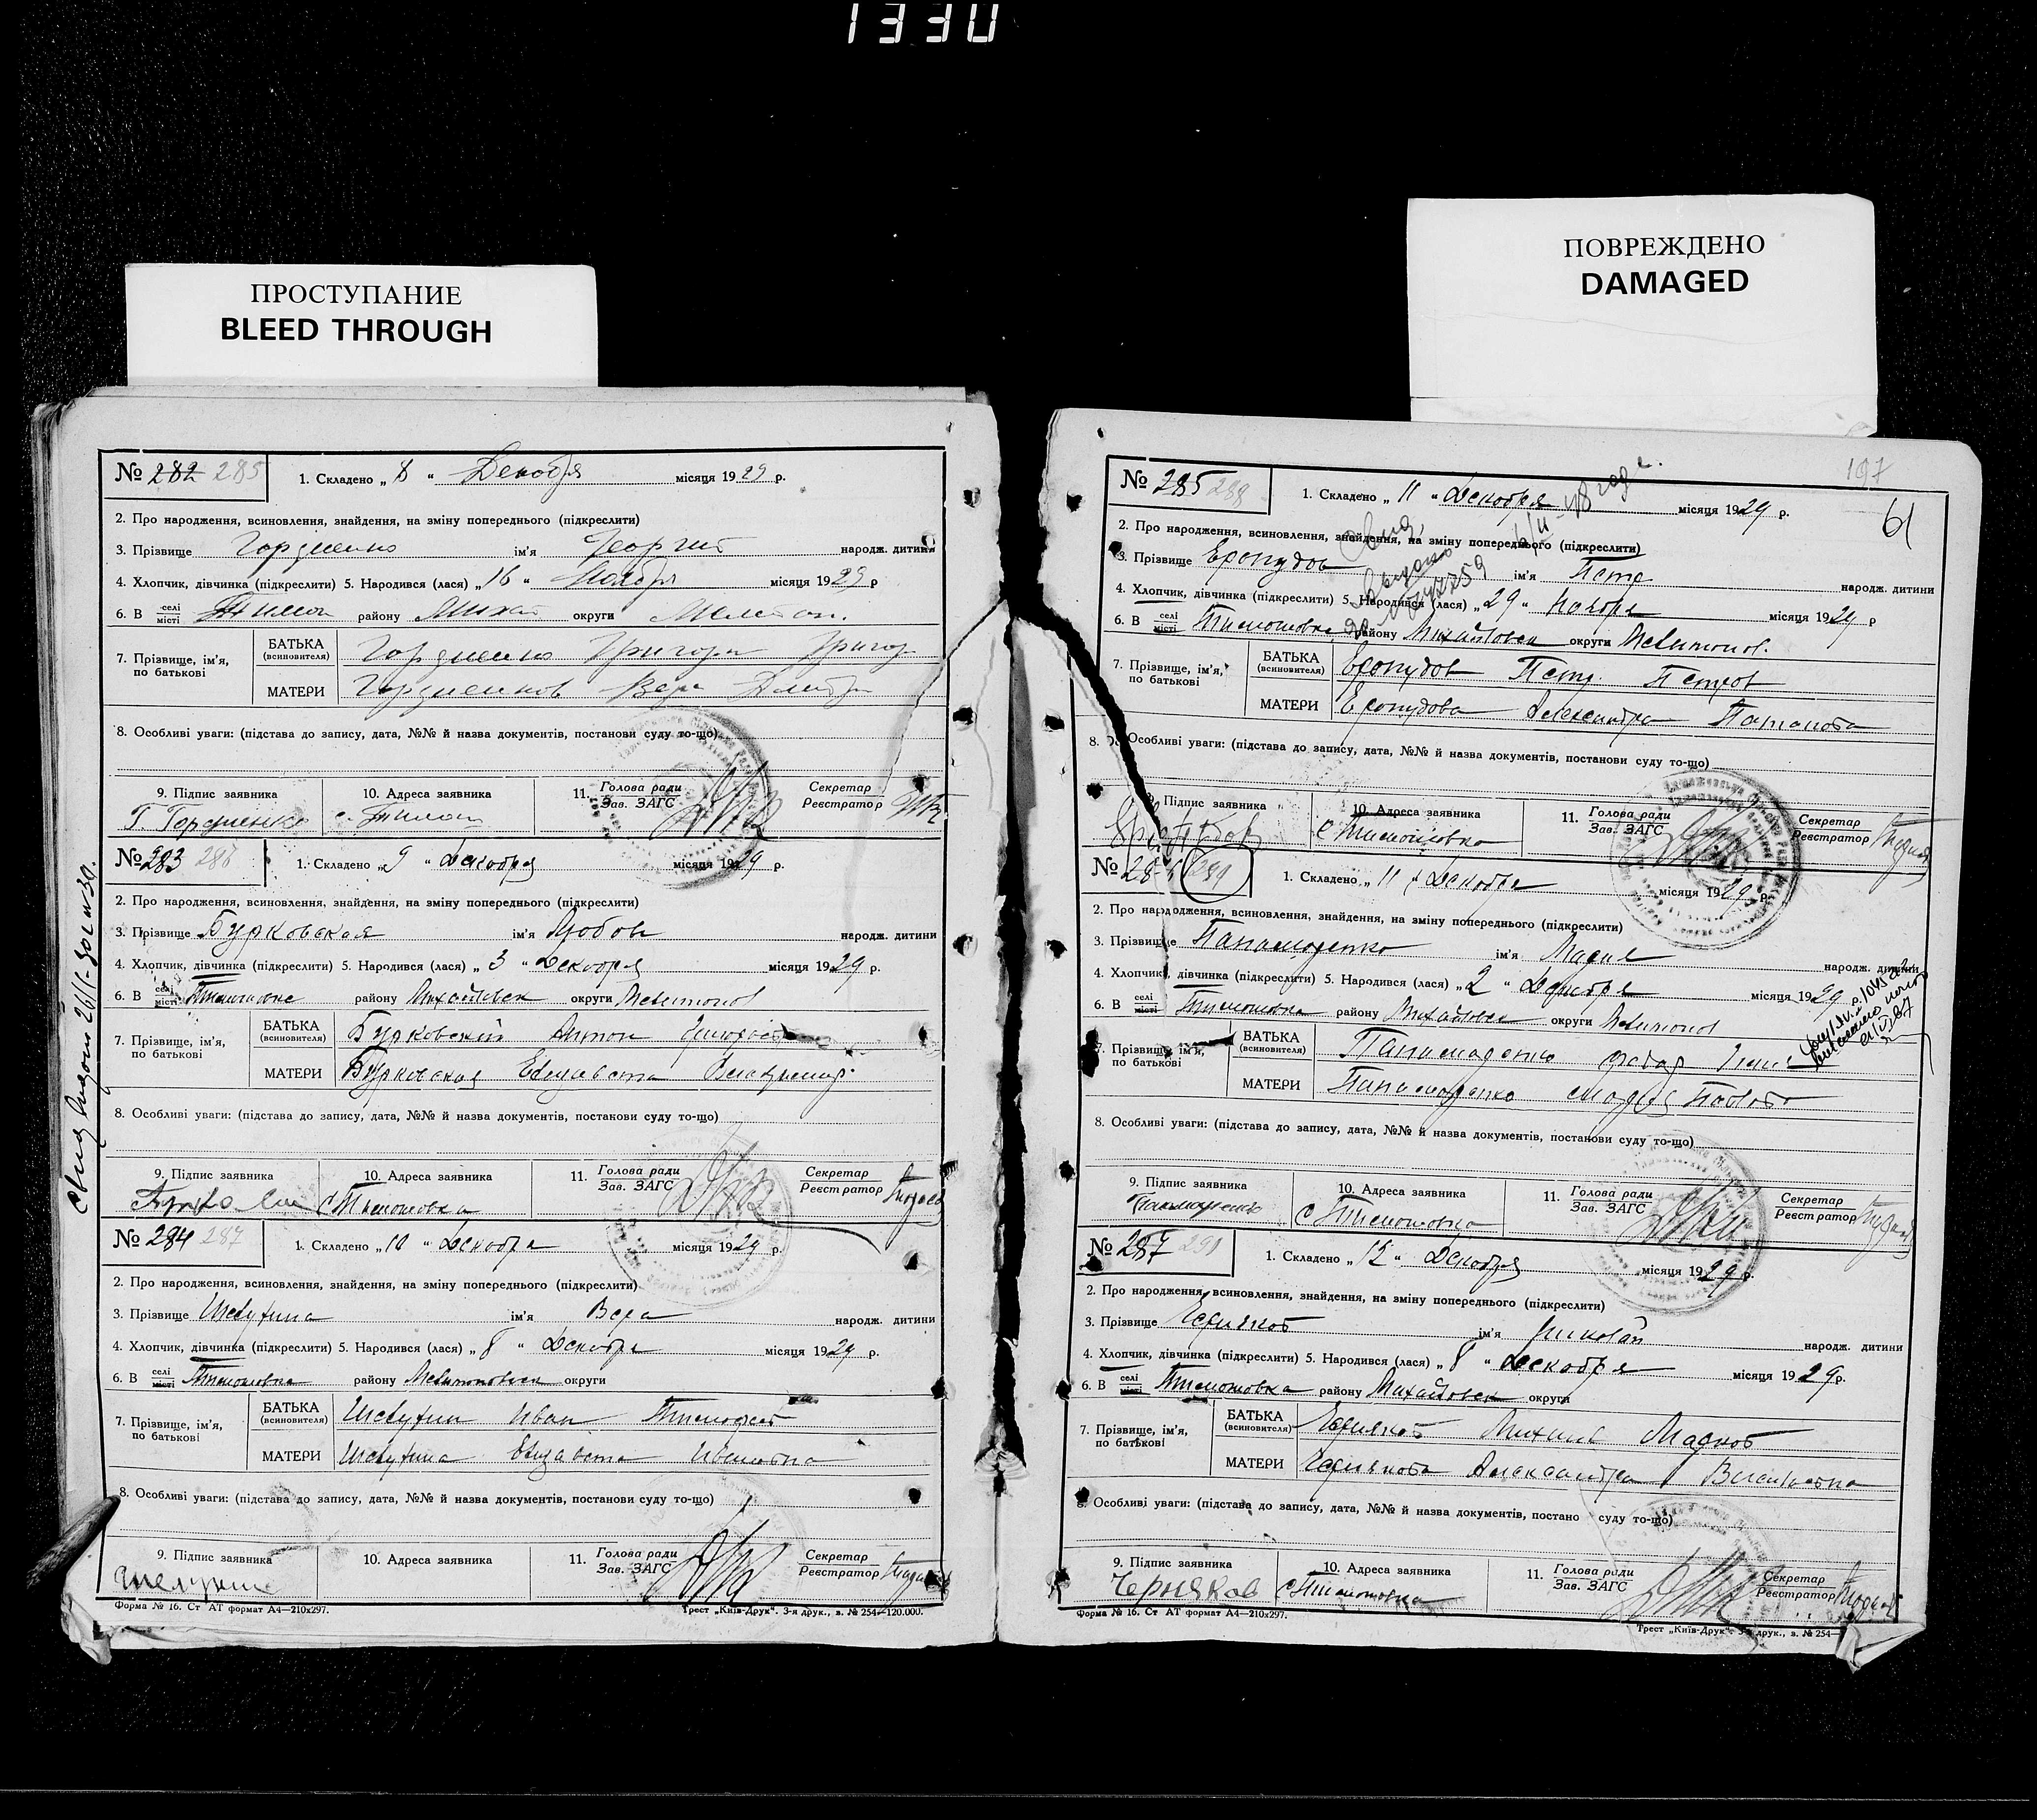 1330
ПРОСТУПАНИЕ
BLEED THROUGH
ПОВРЕЖДЕНО
DAMAGED
№ 282 285 1. Складено „ 8 “ Декабря місяця 1929 р.
2. Про народження, всиновлення, знайдення, на зміну попереднього (підкреслити)
3. Прізвище Гордиенко ім'я Георгий народж. дитини
4. Хлопчик, дівчинка (підкреслити) 5. Народився (лася) „ 16 “ Ноября місяця 1929 р
6. В селі місті Тимош району Михай округи Мелитоп.
7. Прізвище, ім'я, по батькові БАТЬКА (всиновителя) Гордиенко Григори Григор
МАТЕРИ Гордиенков Вера Дмитр
8. Особливі уваги: (підстава до запису, дата, №№ й назва документів, постанови суду то-що)
9. Підпис заявника 10. Адреса заявника 11. Голова ради Зав. ЗАГС Секретар Реєстратор
Г. Гордиенко
№ 283 286 1. Складено „ 9 “ Декобря місяця 1929 р.
2. Про народження, всиновлення, знайдення, на зміну попереднього (підкреслити)
3. Прізвище Бурковская ім'я Любовь народж. дитини
4. Хлопчик, дівчинка (підкреслити) 5. Народився (лася) „ 3 “ Декобря місяця 1929 р.
6. В селі місті Тимошовка району Михайловск округи Мелитопол
7. Прізвище, ім'я, по батькові БАТЬКА (всиновителя) Бурковский Антон
МАТЕРИ Бурковская Елизавета Владимир
8. Особливі уваги: (підстава до запису, дата, №№ й назва документів, постанови суду то-що)
9. Підпис заявника 10. Адреса заявника 11. Голова ради Зав. ЗАГС Секретар Реєстратор
с Тимошовка
№ 284 287 1. Складено „ 10 “ Декобря місяця 1929 р.
2. Про народження, всиновлення, знайдення, на зміну попереднього (підкреслити)
3. Прізвище Шелухина ім'я Вера народж. дитини
4. Хлопчик, дівчинка (підкреслити) 5. Народився (лася) „ 8 “ Декобря місяця 1929 р.
6. В селі місті Тимошовка району Мелитопольск округи
7. Прізвище, ім'я, по батькові БАТЬКА (всиновителя) Шелухин Иван Тимофеев
МАТЕРИ Шелухина Елизавета Ивановна
8. Особливі уваги: (підстава до запису, дата, №№ й назва документів, постанови суду то-що)
9. Підпис заявника 10. Адреса заявника 11. Голова ради Зав. ЗАГС Секретар Реєстратор
Шелухин
Форма № 16. Ст АТ формат А4—210x297. Трест „Київ-Друк“. 3-я друк., в. № 254—120.000.
197
61
№ 285 288 1. Складено „ 11 “ Декобря місяця 1929 р.
2. Про народження, всиновлення, знайдення, на зміну попереднього (підкреслити)
3. Прізвище Еропудов ім'я Петр народж. дитини
4. Хлопчик, дівчинка (підкреслити) 5. Народився (лася) „ 29 “ Ноября місяця 1929 р
6. В селі місті Тимошовка району Михайловск округи Мелитопол.
7. Прізвище, ім'я, по батькові БАТЬКА (всиновителя) Еропудов Петр. Петров
МАТЕРИ Еропудова Александра Потаповна
8. Особливі уваги: (підстава до запису, дата, №№ й назва документів, постанови суду то-що)
9. Підпис заявника 10. Адреса заявника 11. Голова ради Зав. ЗАГС Секретар Реєстратор
с Тимошовка
№ 286 289 1. Складено „ 11 “ Декобря місяця 1929 р.
2. Про народження, всиновлення, знайдення, на зміну попереднього (підкреслити)
3. Прізвище ім'я Мария народж. дитини
4. Хлопчик, дівчинка (підкреслити) 5. Народився (лася) „ 2 “ Декобря місяця 1929 р.
6. В селі місті Тимошовка району Михайловск округи Мелитопол
7. Прізвище, ім'я, по батькові БАТЬКА (всиновителя) Федор
МАТЕРИ Мария Павловна
8. Особливі уваги: (підстава до запису, дата, №№ й назва документів, постанови суду то-що)
9. Підпис заявника 10. Адреса заявника 11. Голова ради Зав. ЗАГС Секретар Реєстратор
с Тимошовка
№ 287 290 1. Складено „ 12 “ Декобря місяця 1929 р.
2. Про народження, всиновлення, знайдення, на зміну попереднього (підкреслити)
3. Прізвище Черняков ім'я Николай народж. дитини
4. Хлопчик, дівчинка (підкреслити) 5. Народився (лася) „ 8 “ Декобря місяця 1929 р.
6. В селі місті Тимошовка району Михайловск округи
7. Прізвище, ім'я, по батькові БАТЬКА (всиновителя) Черняков Михаил Марков
МАТЕРИ Чернякова Александра Васильевна
8. Особливі уваги: (підстава до запису, дата, №№ й назва документів, постано суду то-що)
9. Підпис заявника 10. Адреса заявника 11. Голова ради Зав. ЗАГС Секретар Реєстратор
Черняков с Тимошовка
Форма № 16. Ст АТ формат А4—210x297. Трест „Київ-Друк“. 3-я друк., в. № 254—